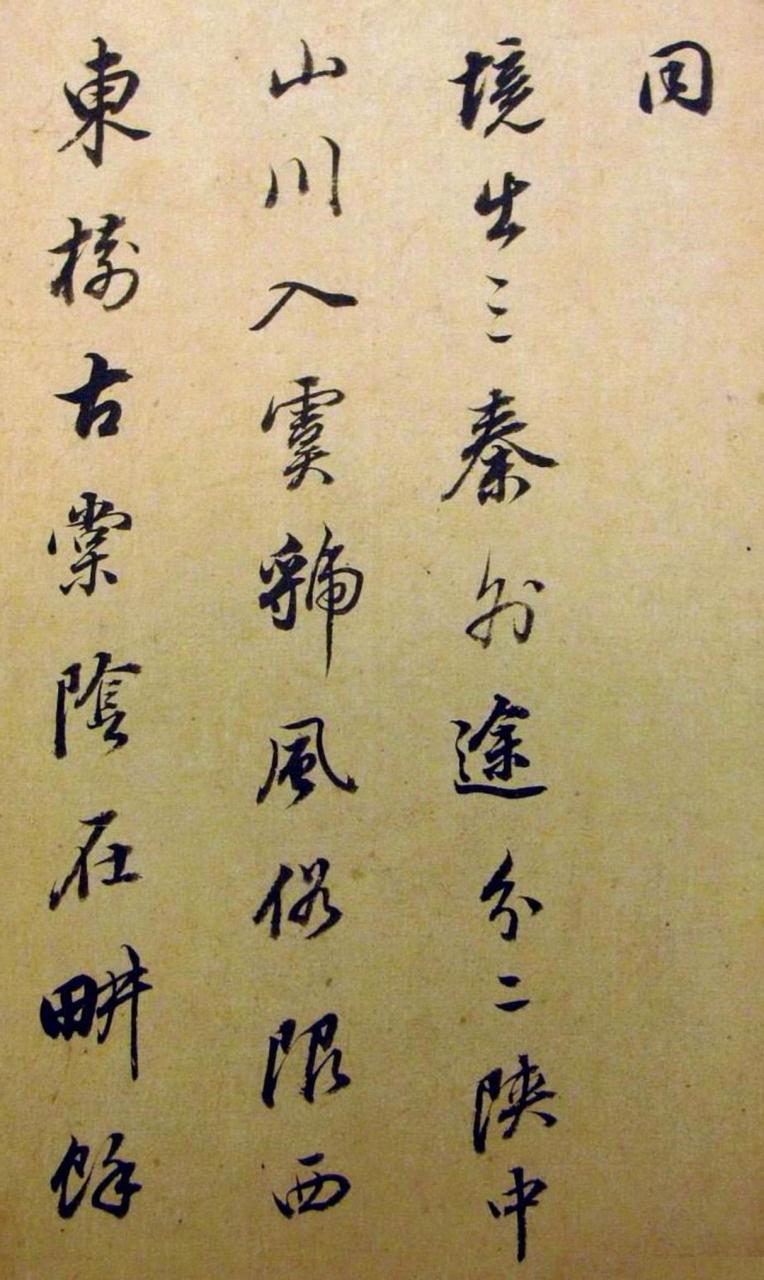 境出三秦外途分二陝中
山川入虞虢風俗限西
東樹古棠陰在畊餘